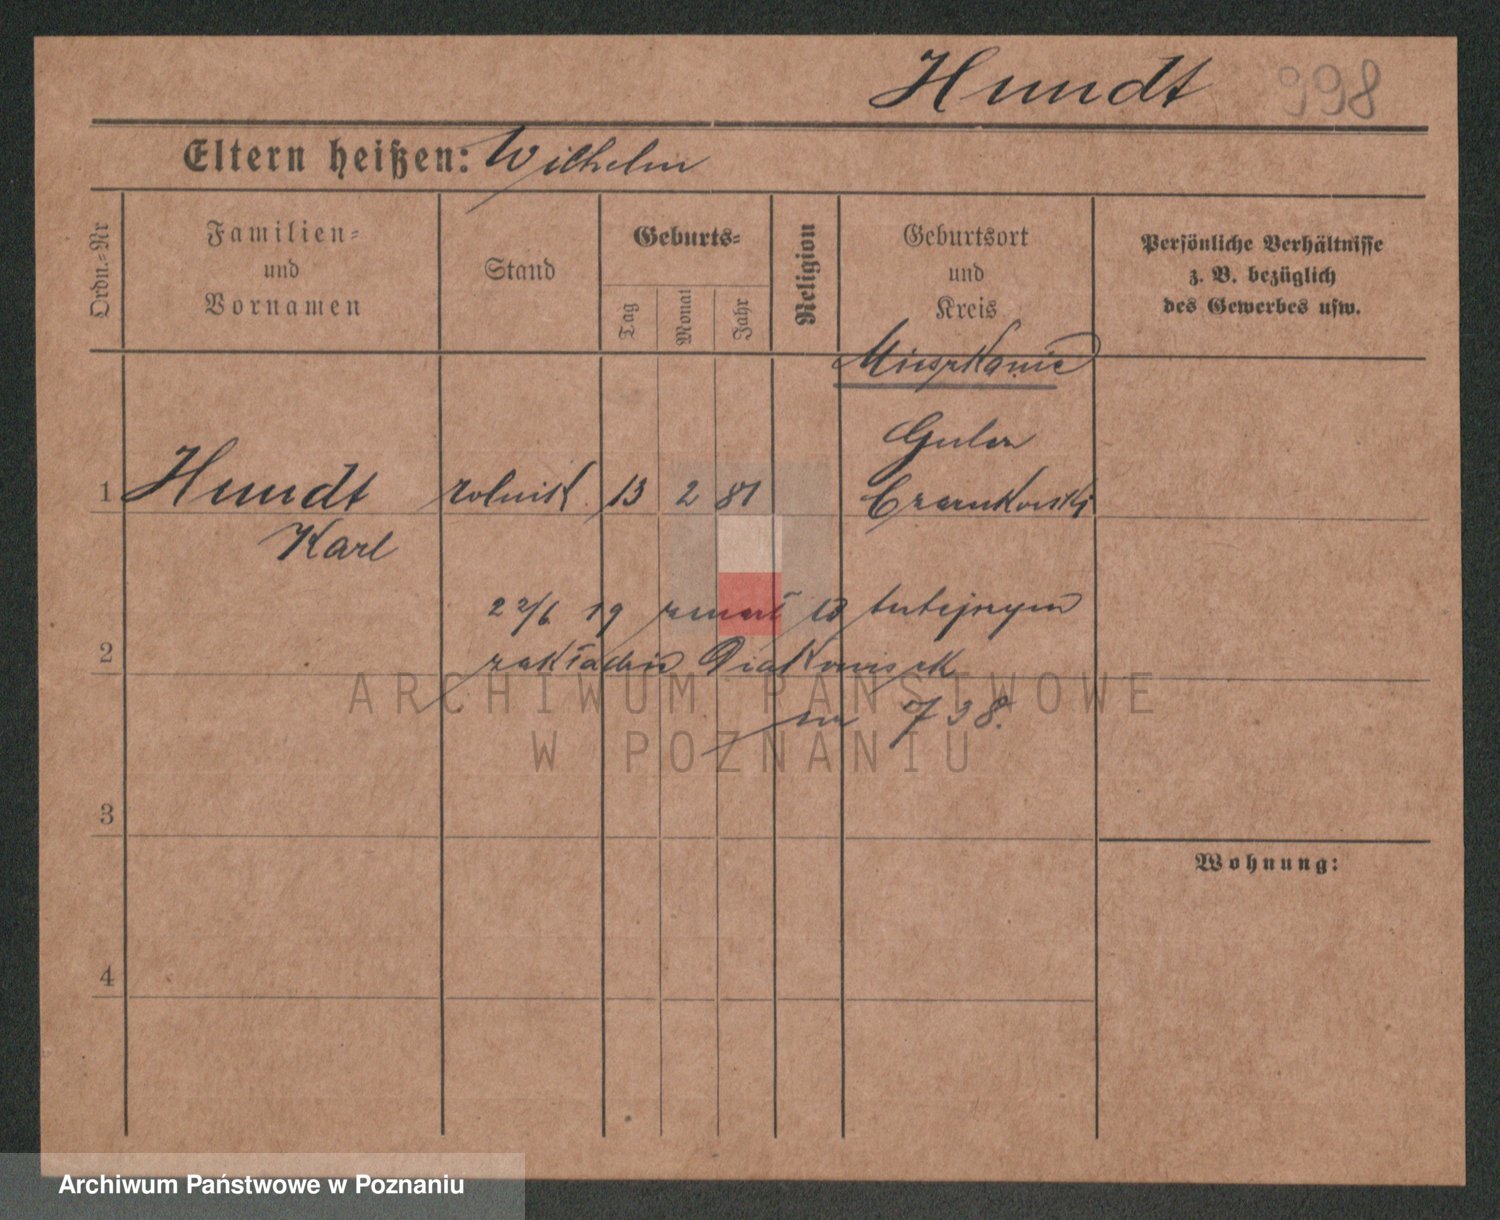 Hundt 998
Eltern heißen: Wilhelm
Ordn.-Nr
Familien-
und
Vornamen
Stand
Geburts-
Tag
Monat
Jahr
Religion
Geburtsort
und
Kreis
Persönliche Verhältnisse
z. B. bezüglich
des Gewerbes usw.
Mieszkanie
Gulcz
1 Hundt rolnik 13 2 81 Czarnkowski
Karl
22/6 19 zmarł w tutejszym
2 zakładzie Diakonisek
nr 738.
3
Wohnung:
4
ARCHIWUM PAŃSTWOWE
W POZNANIU
Archiwum Państwowe w Poznaniu